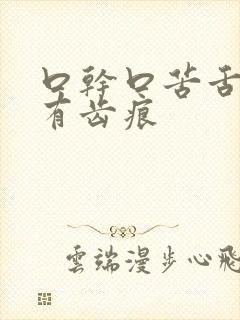 口幹口苦舌
有齿痕
雲端漫步心飛